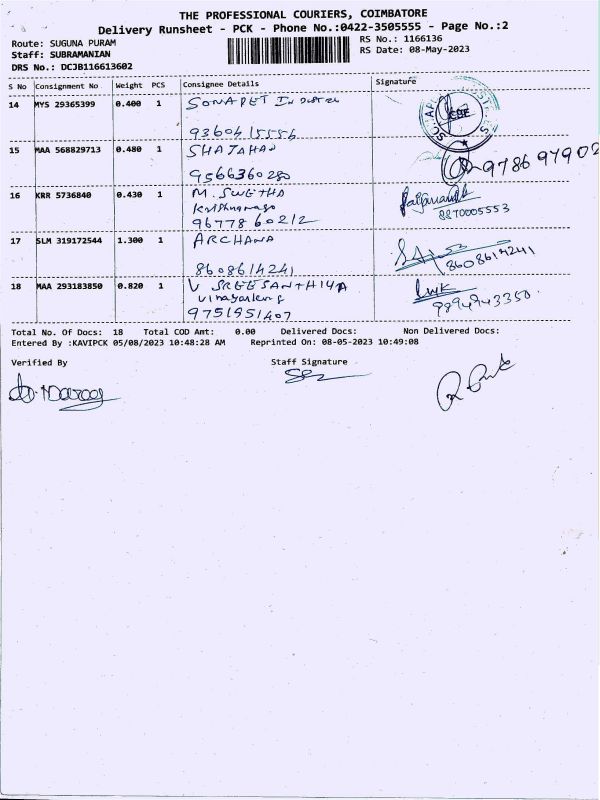 THE PROFESSIONAL COURIERS, COIMBATORE
Delivery Runsheet - PCK - Phone No.:0422-3505555 - Page No.:2
Route: SUGUNA PURAM
RS No.: 1166136
Staff: SUBRAMANIAN
RS Date: 08-May-2023
DRS No.: DCJB116613602
S No Consignment No Weight PCS Consignee Details Signature
14 MYS 29365399 0.400 1 SONAPET
15 MAA 568829713 0.480 1 SHAJAHAN
9566360280
978697902
16 KRR 5736840 0.430 1 M. SWETHA
Krishnanago
9677860212
8870005553
17 SLM 319172544 1.300 1 ARCHANA
8608614241
8608614241
18 MAA 293183850 0.820 1 V SREESANTHIYA
9751951407
9894943350
Total No. Of Docs: 18 Total COD Amt: 0.00 Delivered Docs: Non Delivered Docs:
Entered By :KAVIPCK 05/08/2023 10:48:28 AM Reprinted On: 08-05-2023 10:49:08
Verified By Staff Signature